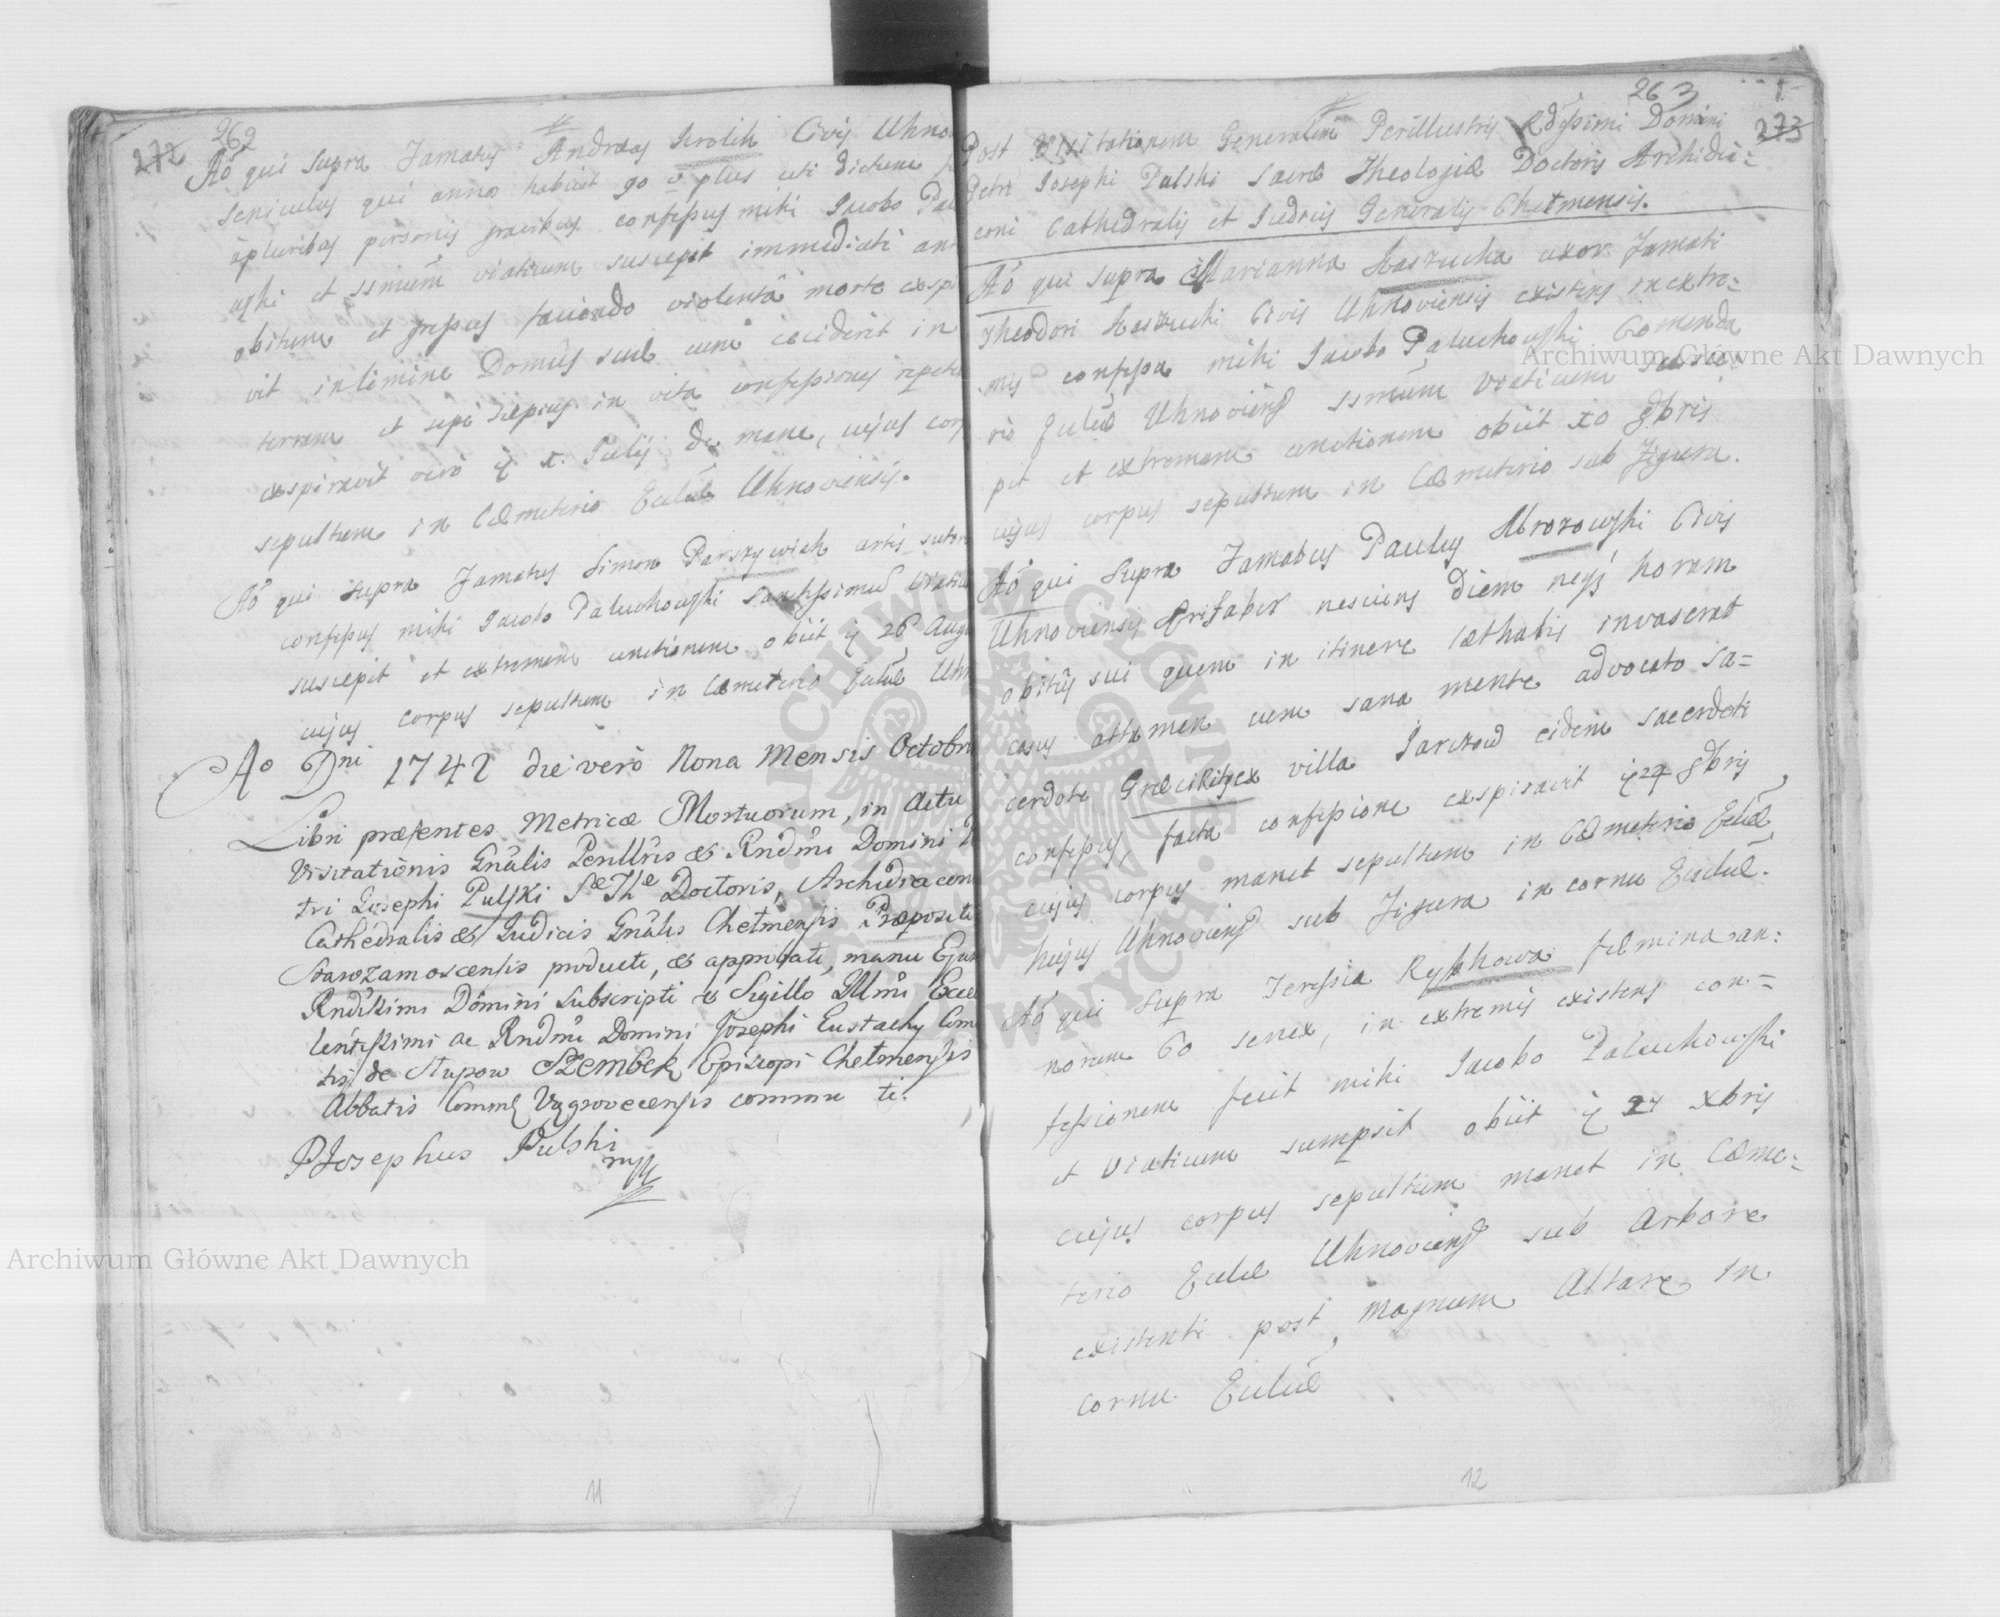 272 262
Ao qui supra Famatus Andreas Krolik Civis Uhno
seniculus qui annos habuit 90 v plus uti dictum
a pluribus personis gravibus confessus miki Jacobo Palu
uski et ssmum viaticum suscepit immediate an
obitum et violenta morte expi
vit in limine Domus suae cum ceciderit in
terram et sepe saepius in vita confessiones repete
expiravit vero 1. Julij de mane, cujus corp
sepultum in Caemeterio Ecclae Uhnoviensis.
Ao qui supra Famatus Simon Parszywiak artis sutor
confessus mihi Jacobo Paluchowski Sanctissimum Viatic
suscepit et extremam unctionem obiit 26 Augu
cujus corpus sepultum in Caemeterio Ecclae Uhn
Ao Dni 1742 die vero Nona Mensis Octobri
Libri praesentes Metricae Mortuorum, in actu
Visitationis Gnalis Perillris & Rndmi Domini
tri Josephi Pulski Sae Thae Doctoris, Archidiacon
Cathedralis & Judicis Gnalis Chelmensis Praepositi
Starozamoscensis producti, & approbati, manu Ejus
Rndissimi Domini subscripti & Sigillo Illmi Excel
lentissimi ac Rndmi Domini Josephi Eustachy Com
tis de Slupow Szembek Episcopi Chelmensis
Abbatis Comm Vagrovecensis commu ti.
PJosephus Pulski
mpp
11
263 273
Post Visitationem Generalem Perillustris Rdssimi Domini
Petri Josephi Pulski Sacrae Theologiae Doctoris Archidia=
coni Cathedralis et Judicis Generalis Chelmensis.
Ao qui supra Marianna Kaszucka uxor Famati
Theodori Kaszucki Civis Uhnoviensis existens in extre=
mis confessa mihi Jacobo Paluchowski Comenda
rio Ecclae Uhnoviens ssmum Viaticum susce
pit et extremam unctionem obiit 10 9bris
cujus corpus sepultum in Caemeterio sub Figura.
Ao qui supra Famatus Paulus Mrozowski Civis
Uhnoviensis nesciens diem neq horam
obitus sui quem in itinere laethalis invaserat
casus attamen cum sana mente advocato sa=
cerdote Graeci Ritus ex villa Jarczow eidem sacerdoti
confessus, facta confessione expiravit 27 9bris
cujus corpus manet sepultum in Caemeterio Ecclae
hujus Uhnoviens sub Figura in cornu Ecclae.
Ao qui supra Teressia Ryskowa faemina an=
norum 60 senex, in extremis existens con=
fessionem fecit mihi Jacobo Paluchowski
et Viaticum sumpsit obiit 24 Xbris
cujus corpus sepultum manet in Caeme=
terio Ecclae Uhnoviens sub Arbore
existenti post magnum Altare in
cornu Ecclae
12
Archiwum Główne Akt Dawnych
Archiwum Główne Akt Dawnych